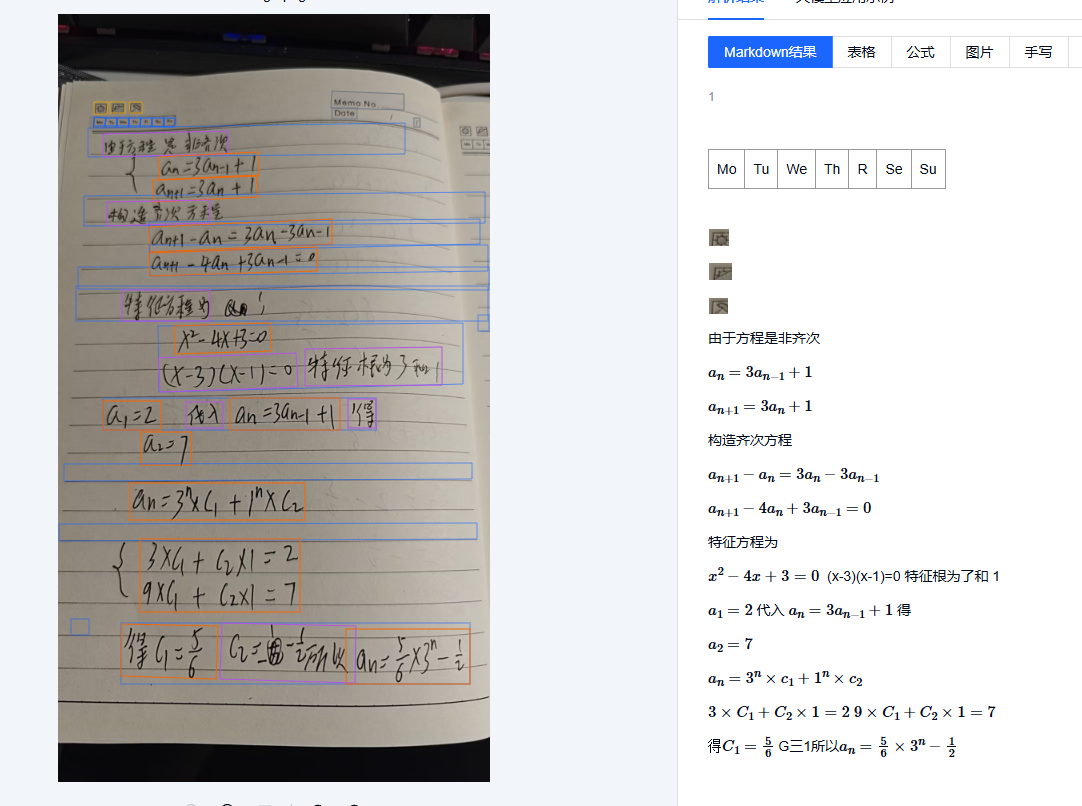 Memo No.
Date
Mo Tu We Th Fr Sa Su
由于方程是非齐次
an=3an-1+1
an+1=3an+1
构造齐次方程
an+1-an=3an-3an-1
an+1-4an+3an-1=0
特征方程为
x²-4x+3=0
(x-3)(x-1)=0 特征根为3和1
a₁=2 代入 an=3an-1+1 得
a₂=7
an=3ⁿ×C₁+1ⁿ×C₂
3×C₁+C₂×1=2
9×C₁+C₂×1=7
得C₁=5/6 C₂=-1/2所以 an=5/6×3ⁿ-1/2
Markdown结果 表格 公式 图片 手写
1
Mo Tu We Th R Se Su
由于方程是非齐次
aₙ=3aₙ₋₁+1
aₙ₊₁=3aₙ+1
构造齐次方程
aₙ₊₁-aₙ=3aₙ-3aₙ₋₁
aₙ₊₁-4aₙ+3aₙ₋₁=0
特征方程为
x²-4x+3=0 (x-3)(x-1)=0 特征根为了和 1
a₁=2 代入 aₙ=3aₙ₋₁+1 得
a₂=7
aₙ=3ⁿ×c₁+1ⁿ×c₂
3×C₁+C₂×1=2 9×C₁+C₂×1=7
得C₁=5/6 G三1所以aₙ=5/6×3ⁿ-1/2